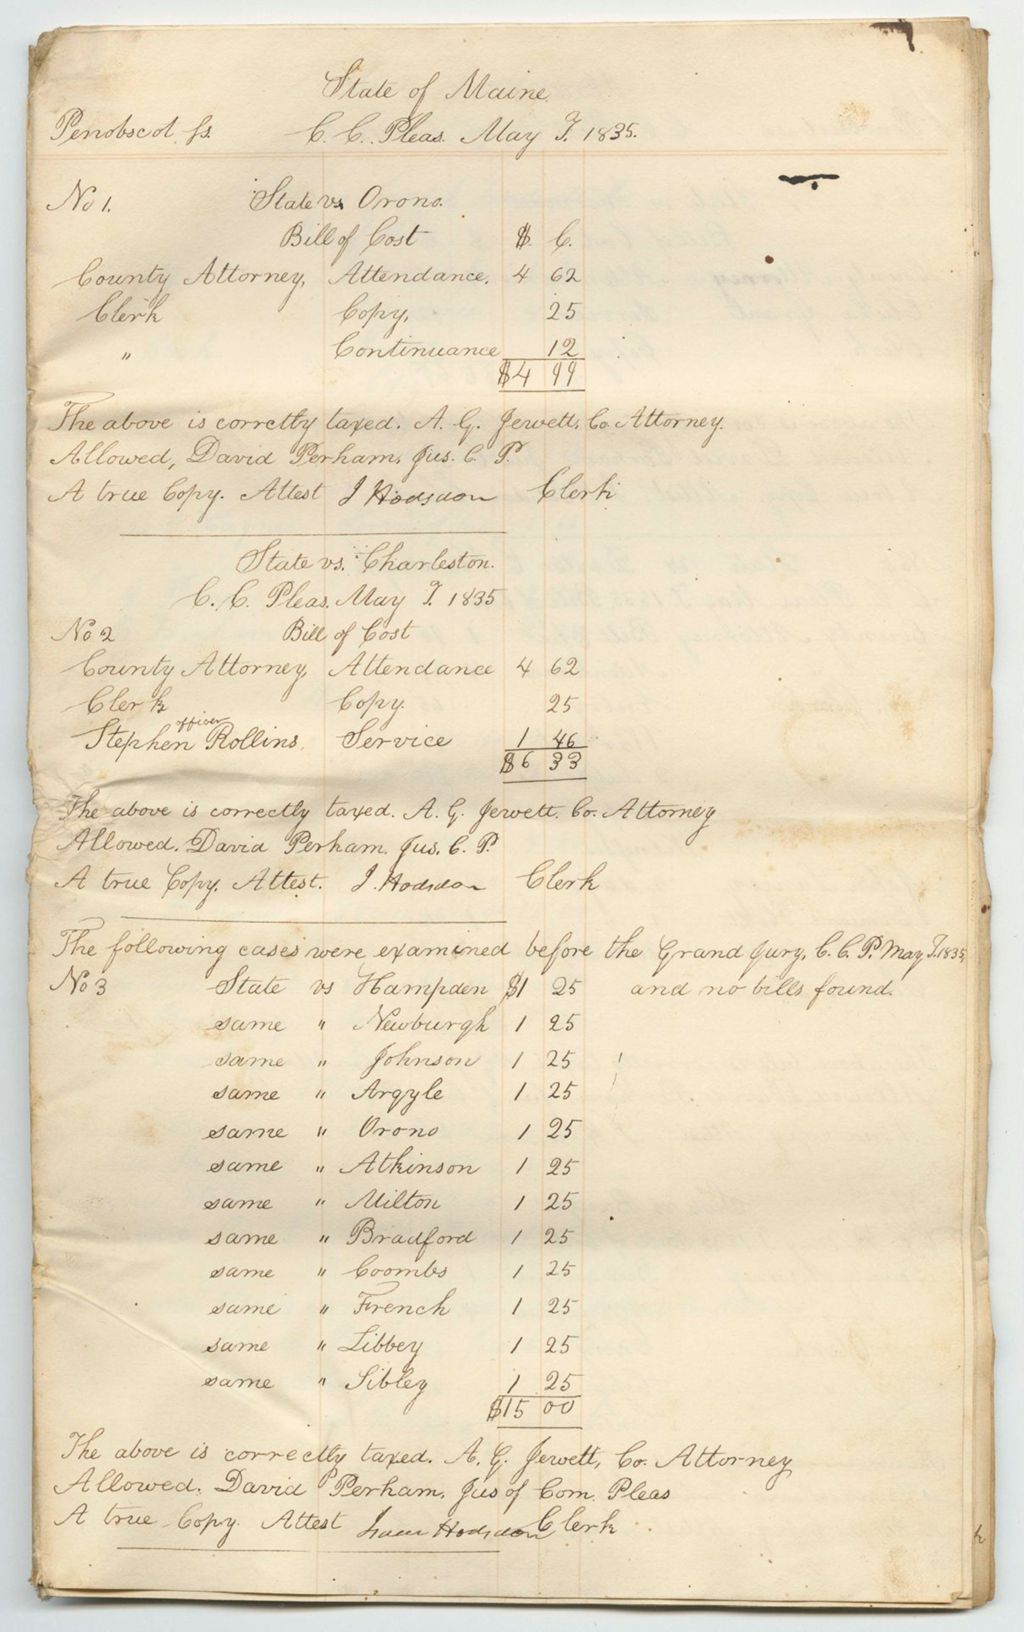 State of Maine
Penobscot ss. C. C. Pleas. May T. 1835.
No 1. State vs. Orono.
Bill of Cost $ C.
County Attorney, Attendance. 4 62
Clerk Copy, 25
" Continuance 12
$4 99
The above is corrctly taxed. A. G. Jewett, Co. Attorney.
Allowed, David Perham, Jus. C. P.
A true Copy. Attest I Hodsdon Clerk
State vs. Charleston.
C. C. Pleas. May T. 1835
No 2 Bill of Cost
County Attorney, Attendance 4 62
Clerk Copy. 25
officer
Stephen Rollins, Service 1 46
$6 33
The above is correctly taxed. A. G. Jewett. Co. Attorney
Allowed. David Perham. Jus. C. P.
A true Copy. Attest. I. Hodsdon Clerk
The following cases were examined before the Grand Jury, C. C. P. May T. 1835,
No 3 State vs Hampden $1 25 and no bills found.
same " Newburgh 1 25
same " Johnson 1 25
same " Argyle 1 25
same " Orono 1 25
same " Atkinson 1 25
same " Milton 1 25
same " Bradford 1 25
same " Coombs 1 25
same " French 1 25
same " Libbey 1 25
same " Sibley 1 25
$15 00
The above is correctly taxed. A. G. Jewett, Co. Attorney
Allowed. David Perham, Jus of Com. Pleas
A true Copy. Attest Isaac Hodsdon Clerk